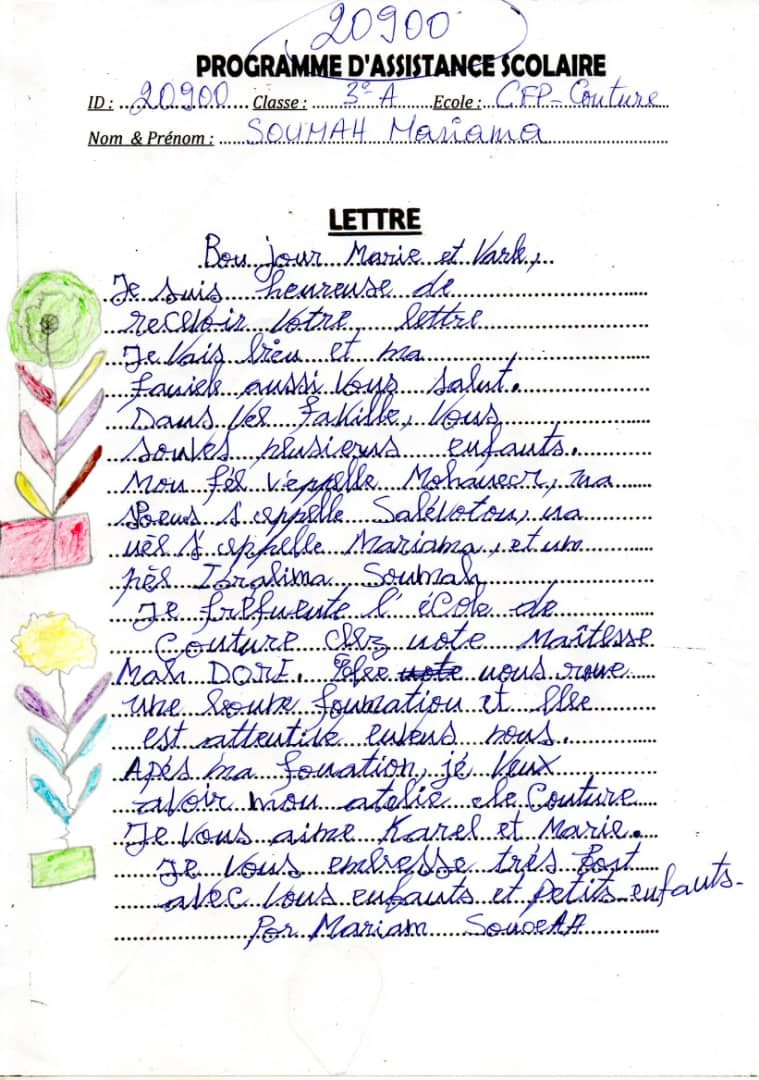 20900
PROGRAMME D'ASSISTANCE SCOLAIRE
ID : 20900 Classe : 3e A Ecole : CFP-Couture
Nom & Prénom : SOUMAH Mariama
LETTRE
Bou jour Marie et Vark,
Je suis heureuse de
recevoir votre lettre
Je vais bieu et ma
faniele aussi vous salut.
Dans ver fakille, vous
souves plusierus enfants.
Mou fél v'eppelle Mohauecr, ma
soeus s'eppelle Salévotou, na
uès s'eppelle Mariama, et um
pès Ibralima Soumah
Je fréfuente l'école de
Couture chez note Maîtesse
Mah DORE. Elee nous roue
une boune foumation et Elle
est attentive euveus nous.
Apés ma fouation, jé veux
avoir mou atelie de Couture
Je vous aime Karel et Marie.
Je vous embresse trés fost
avec vous eufauts et petits-eufauts.
Por Mariam